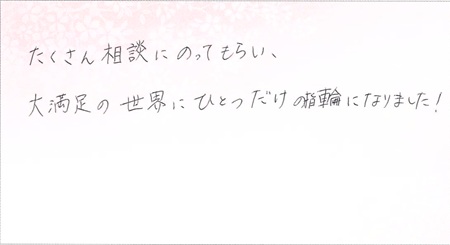 たくさん相談にのってもらい、
大満足の世界にひとつだけの指輪になりました！